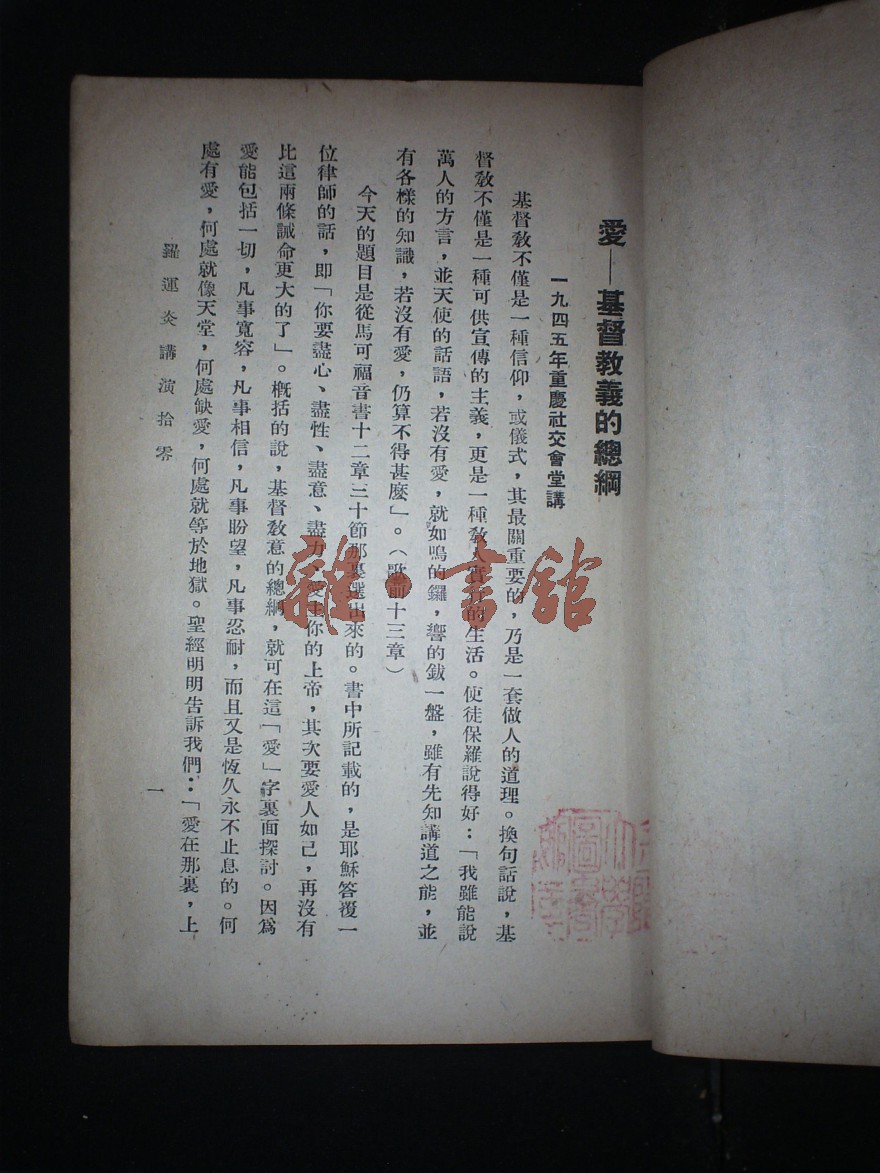 愛—基督教義的總綱
一九四五年重慶社交會堂講
基督教不僅是一種信仰，或儀式，其最關重要的，乃是一套做人的道理。換句話說，基
督教不僅是一種可供宣傳的主義，更是一種教人實行的生活。使徒保羅說得好：「我雖能說
萬人的方言，並天使的話語，若沒有愛，就如鳴的鑼，響的鈸一盤，雖有先知講道之能，並
有各樣的知識，若沒有愛，仍算不得甚麽」。（前十三章）
今天的題目是從馬可福音書十二章三十節那裏選出來的。書中所記載的，是耶穌答覆一
位律師的話，即「你要盡心、盡性、盡意、盡力、愛主你的上帝，其次要愛人如己，再沒有
比這兩條誡命更大的了」。概括的說，基督教意的總綱，就可在這「愛」字裏面探討。因爲
愛能包括一切，凡事寬容，凡事相信，凡事盼望，凡事忍耐，而且又是恆久永不止息的。何
處有愛，何處就像天堂，何處缺愛，何處就等於地獄。聖經明明告訴我們：「愛在那裏，上
羅運炎講演拾零
一
雜·書館